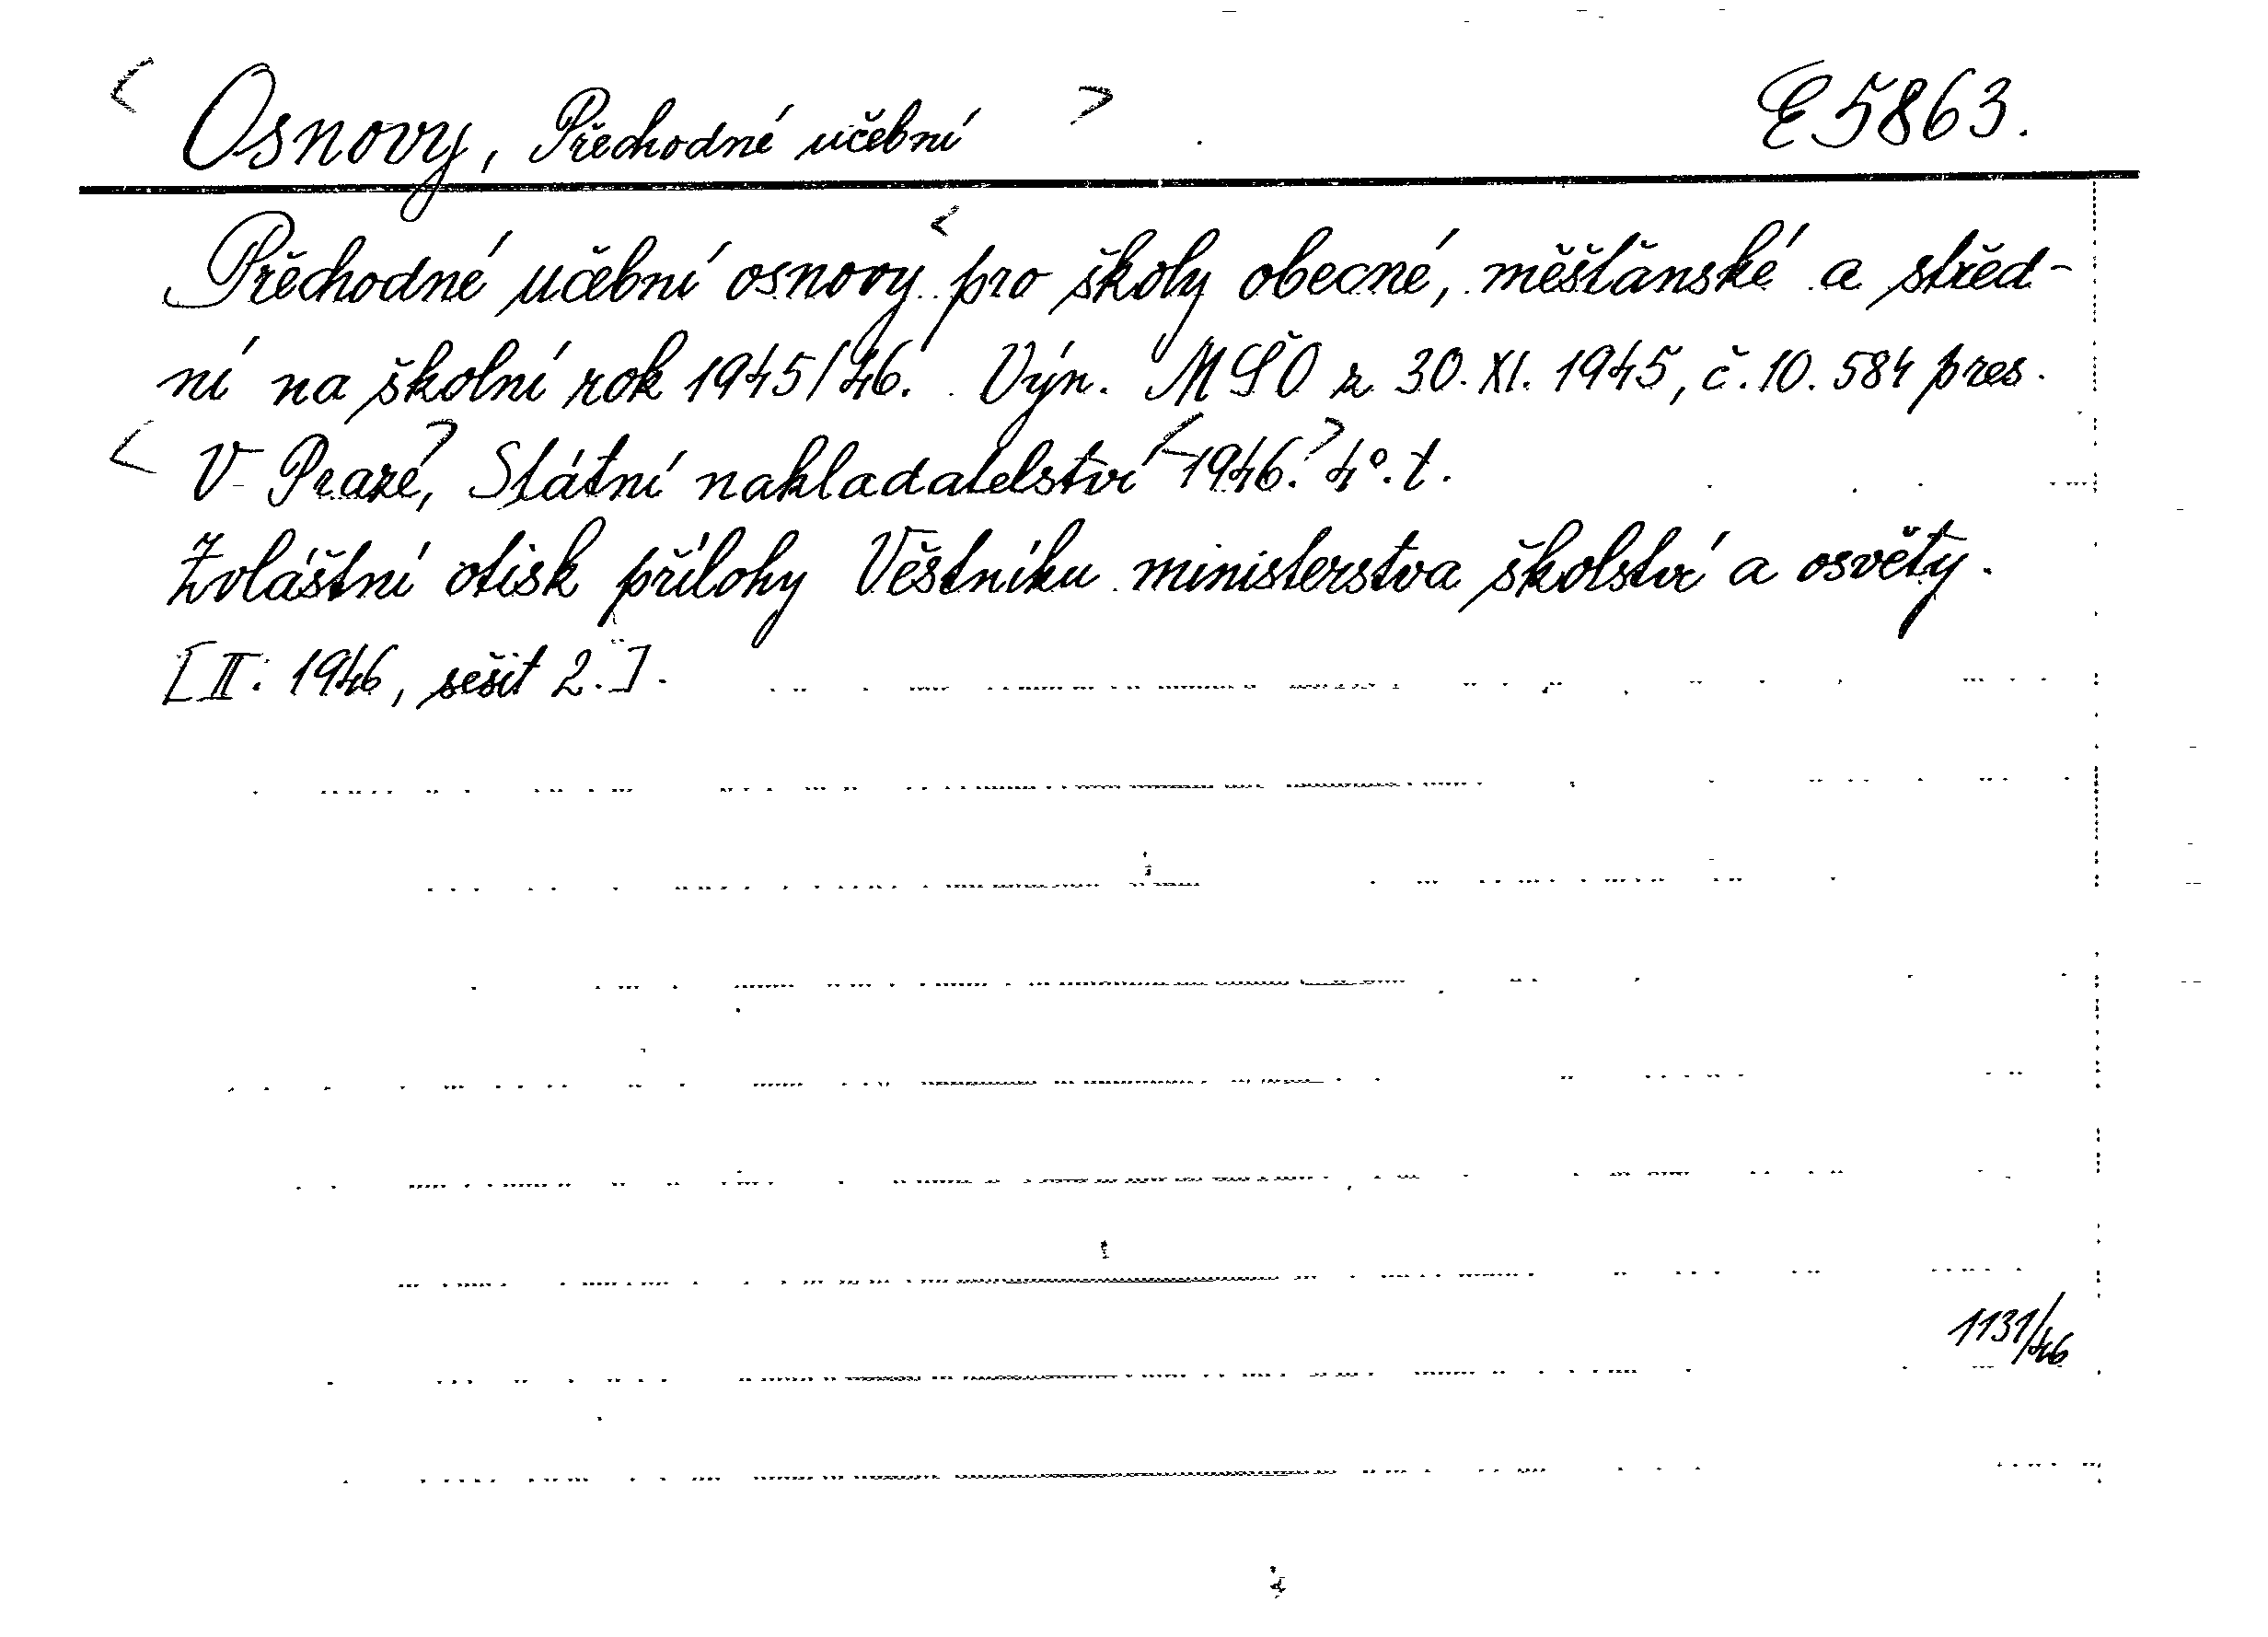 < Osnovy, Přechodné učební > E 5863.
Přechodné učební osnovy < pro školy obecné, měšťanské a střed-
ní na školní rok 1945/46. Výn. MŠO z 30. XI. 1945, č. 10.584 pres.
< V Praze >, Státní nakladatelství < 1946. > 4°. t.
Zvláštní otisk přílohy Věstníku ministerstva školství a osvěty.
[II. 1946, sešit 2.].
1131/46